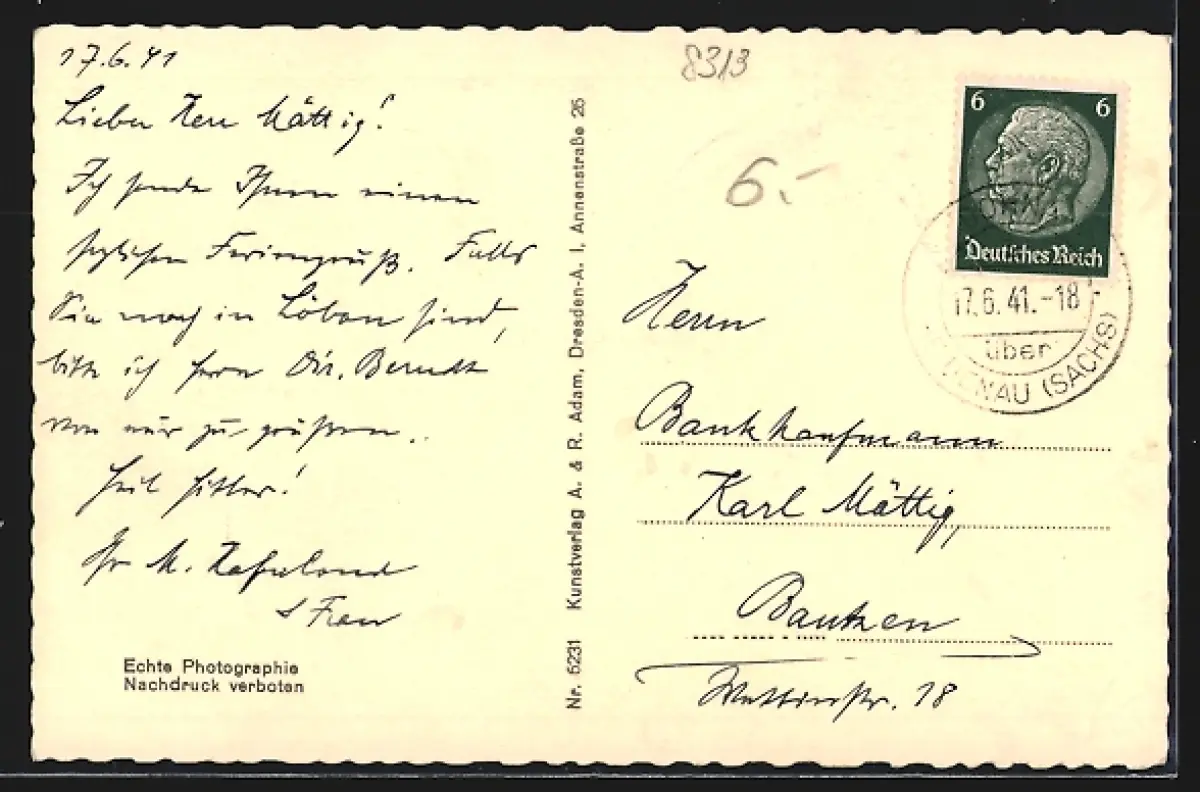 17.6.41
Lieber Herr Mättig!
Ich sende Ihnen einen
herzlichen Feriengruß. Falls
Sie noch in Löbau sind,
bitte ich Herrn Dir. Berndt
von mir zu grüßen.
Heil Hitler!
Ihr M.
& Frau
Echte Photographie
Nachdruck verboten
Nr. 6231 Kunstverlag A. & R. Adam, Dresden-A. I, Annenstraße 26
8313
6.-
6 6
Deutsches Reich
17.6.41.-18
über
(SACHS)
Herrn
Bankkaufmann
Karl Mättig,
Bautzen
Wettinstr. 18